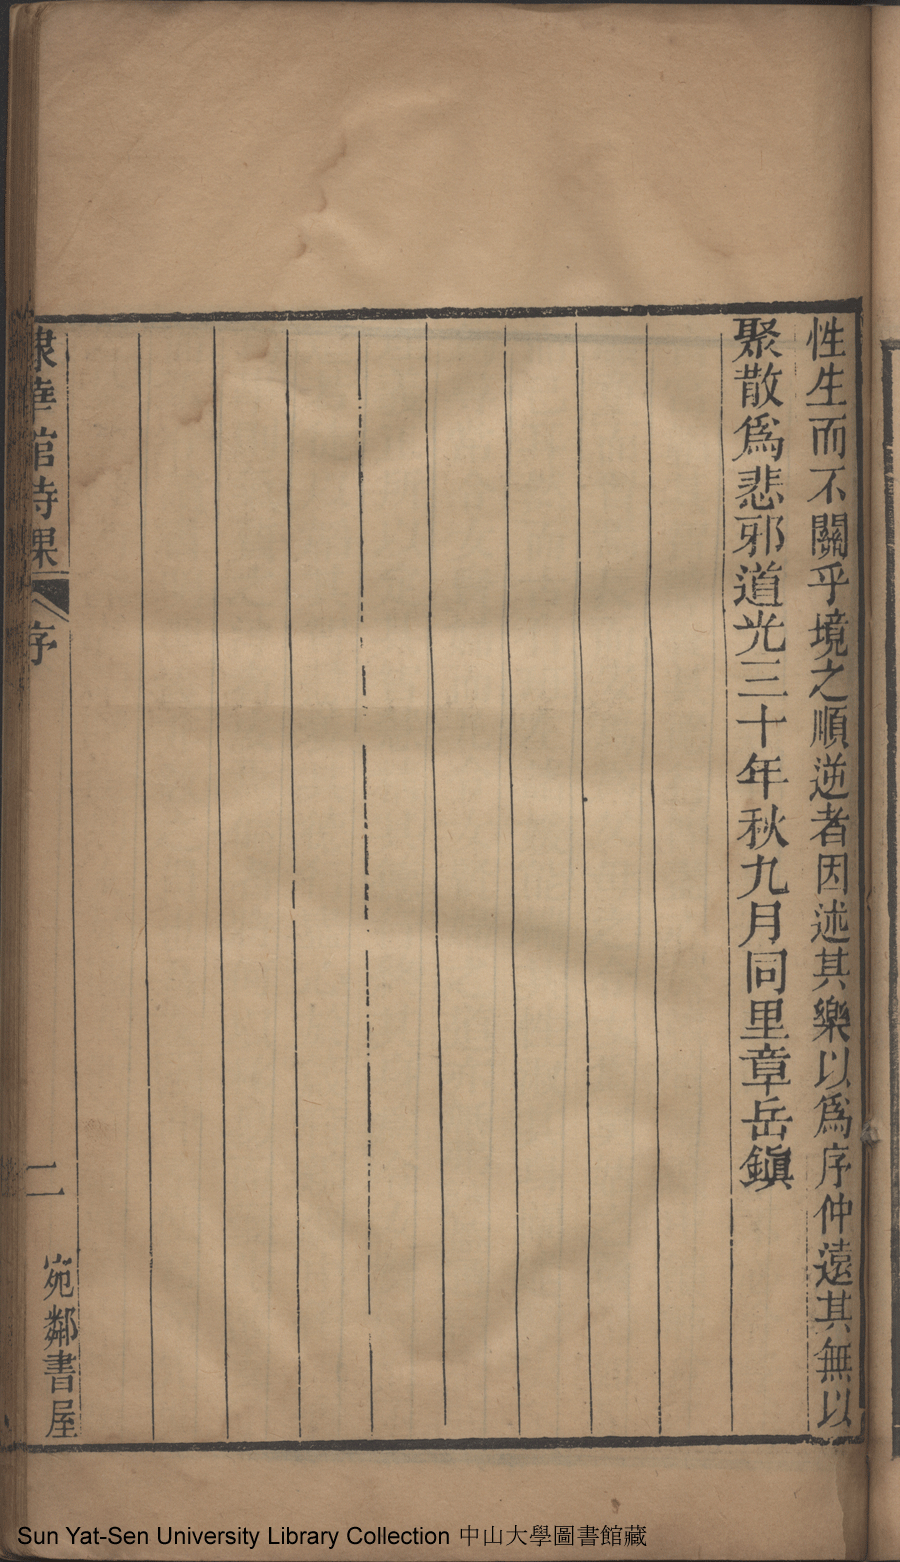 性生而不關乎境之順逆者因述其樂以爲序仲遠其無以
聚散爲悲邪道光三十年秋九月同里章岳鎭
棣華館詩課
序
二
宛鄰書屋
Sun Yat-Sen University Library Collection 中山大學圖書館藏